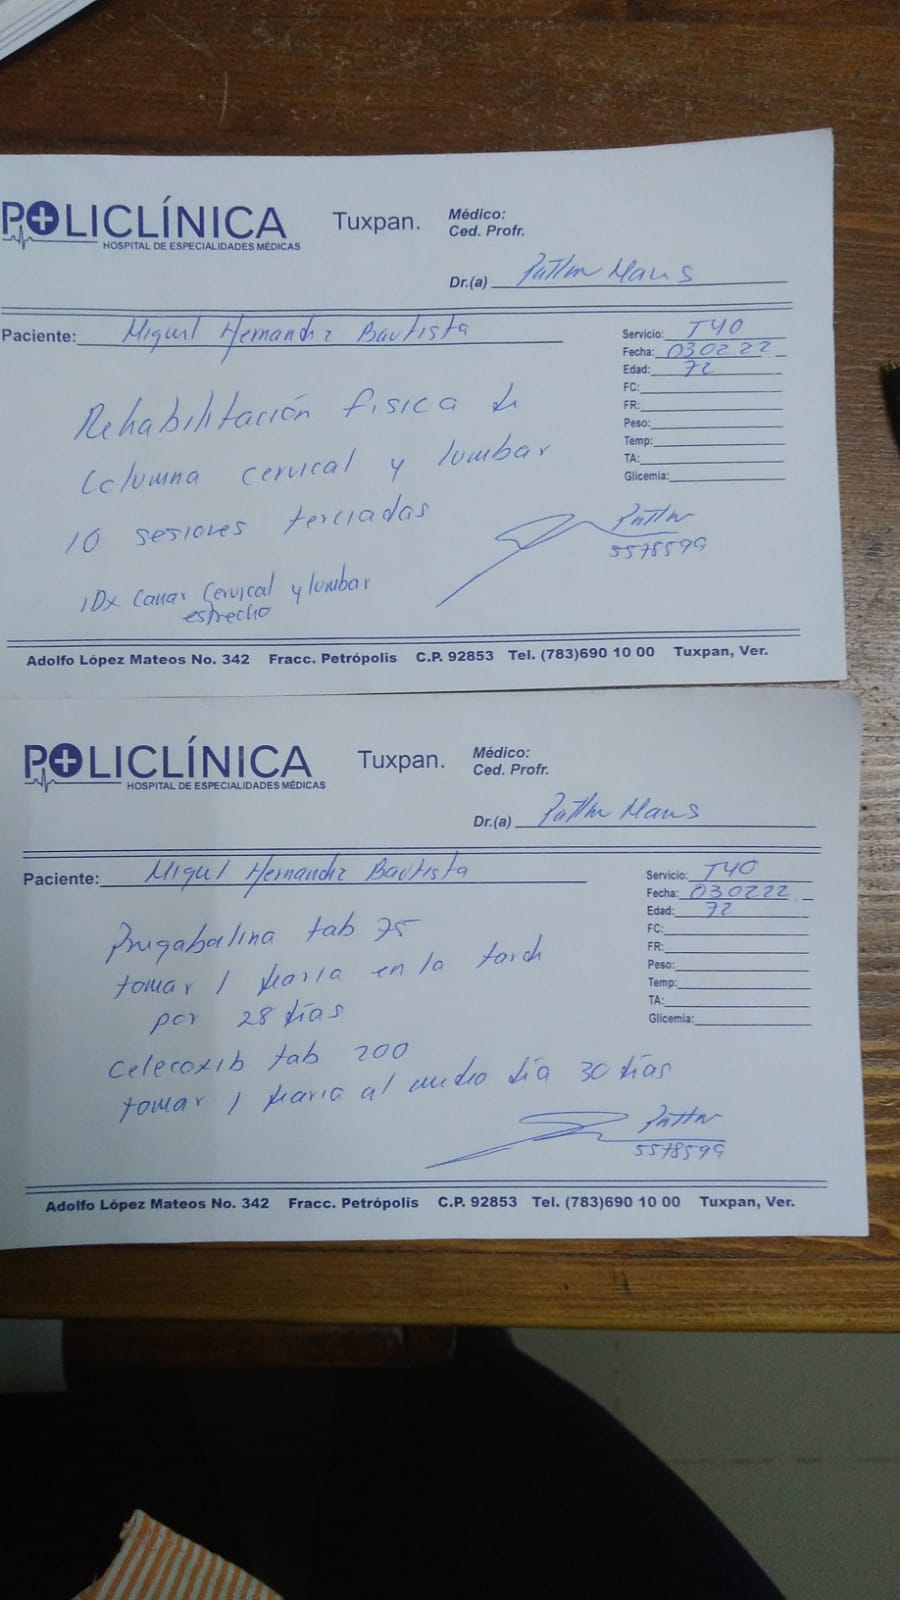 POLICLÍNICA
HOSPITAL DE ESPECIALIDADES MÉDICAS
Tuxpan.
Médico:
Ced. Profr.
Dr.(a)
Paciente: Miguel Hernandez Bautista
Servicio: TYO
Fecha: 030222
Edad: 72
FC:
FR:
Peso:
Temp:
TA:
Glicemia:
Rehabilitación fisica de
Columna cervical y lumbar
10 sesiones terciadas
IDx Canar Cervical y lumbar
estrecho
5578599
Adolfo López Mateos No. 342 Fracc. Petrópolis C.P. 92853 Tel. (783)690 10 00 Tuxpan, Ver.
POLICLÍNICA
HOSPITAL DE ESPECIALIDADES MÉDICAS
Tuxpan.
Médico:
Ced. Profr.
Dr.(a)
Paciente: Miguel Hernandez Bautista
Servicio: TYO
Fecha: 030222
Edad: 72
FC:
FR:
Peso:
Temp:
TA:
Glicemia:
Pregabalina tab 75
tomar 1 diaria en la tarde
por 28 dias
Celecoxib tab 200
tomar 1 diaria al medio dia 30 dias
5578599
Adolfo López Mateos No. 342 Fracc. Petrópolis C.P. 92853 Tel. (783)690 10 00 Tuxpan, Ver.